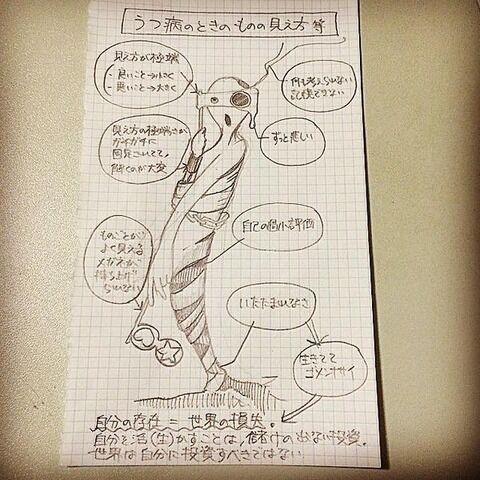 うつ病のときのものの見え方 等
見え方が極端
・良いこと→小さく
・悪いこと→大きく
何も考えられない
記憶できない
見え方の極端さが
ガチガチに
固定されてて、
解くのが大変
ずっと悲しい
自己の過小評価
ものごとが
よく見える
メガネが
持ち上げ
られない
いたたまれなさ
生きてて
ゴメンナサイ
自分の存在 = 世界の損失。
自分を活(生)かすことは、儲けの出ない投資。
世界は自分に投資すべきではない